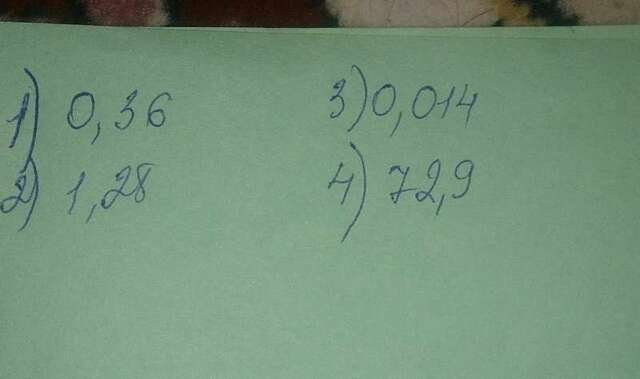 1) 0,36
2) 1,28
3) 0,014
4) 72,9